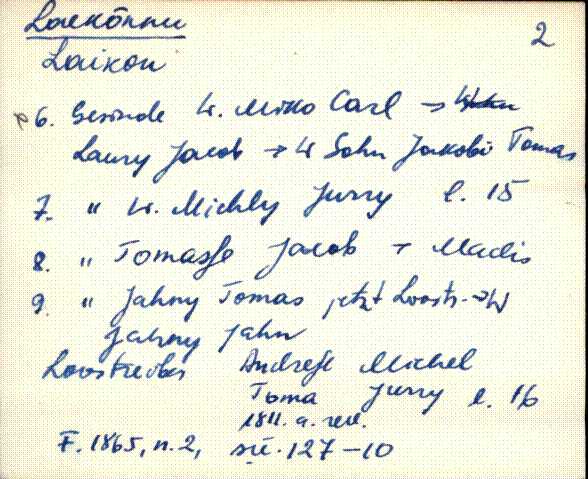 Laekõnnu 2
Laikon
6. Gesinde W. Mikko Carl →
Laury Jacob → W Sohn Jakobi Tomas
7. " W. Michly Jurry l. 15
8. " Tomasse Jacob → Madis
9. " Jahny Tomas jetzt Loostr. → W
Jahny Jahn
Loostreiber Andresse Michel
Toma Jurry l. 16
1811. a. rev.
F. 1865, n. 2, sü. 127-10